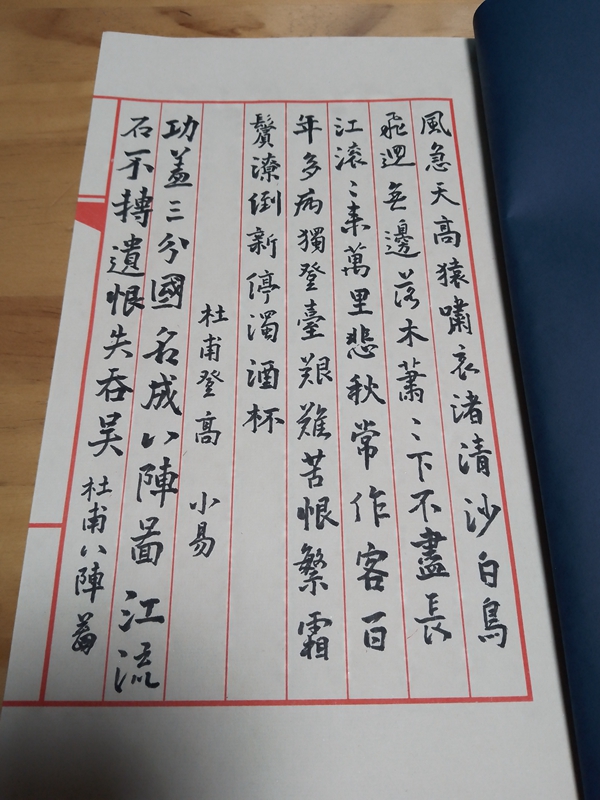 風急天高猿嘯哀渚清沙白鳥
飛迴無邊落木蕭〻下不盡長
江滚〻来萬里悲秋常作客百
年多病獨登臺艱難苦恨繁霜
鬢潦倒新停濁酒杯
杜甫登高 小易
功盖三分國名成八陣啚江流
石不轉遺恨失吞吴 杜甫八陣啚